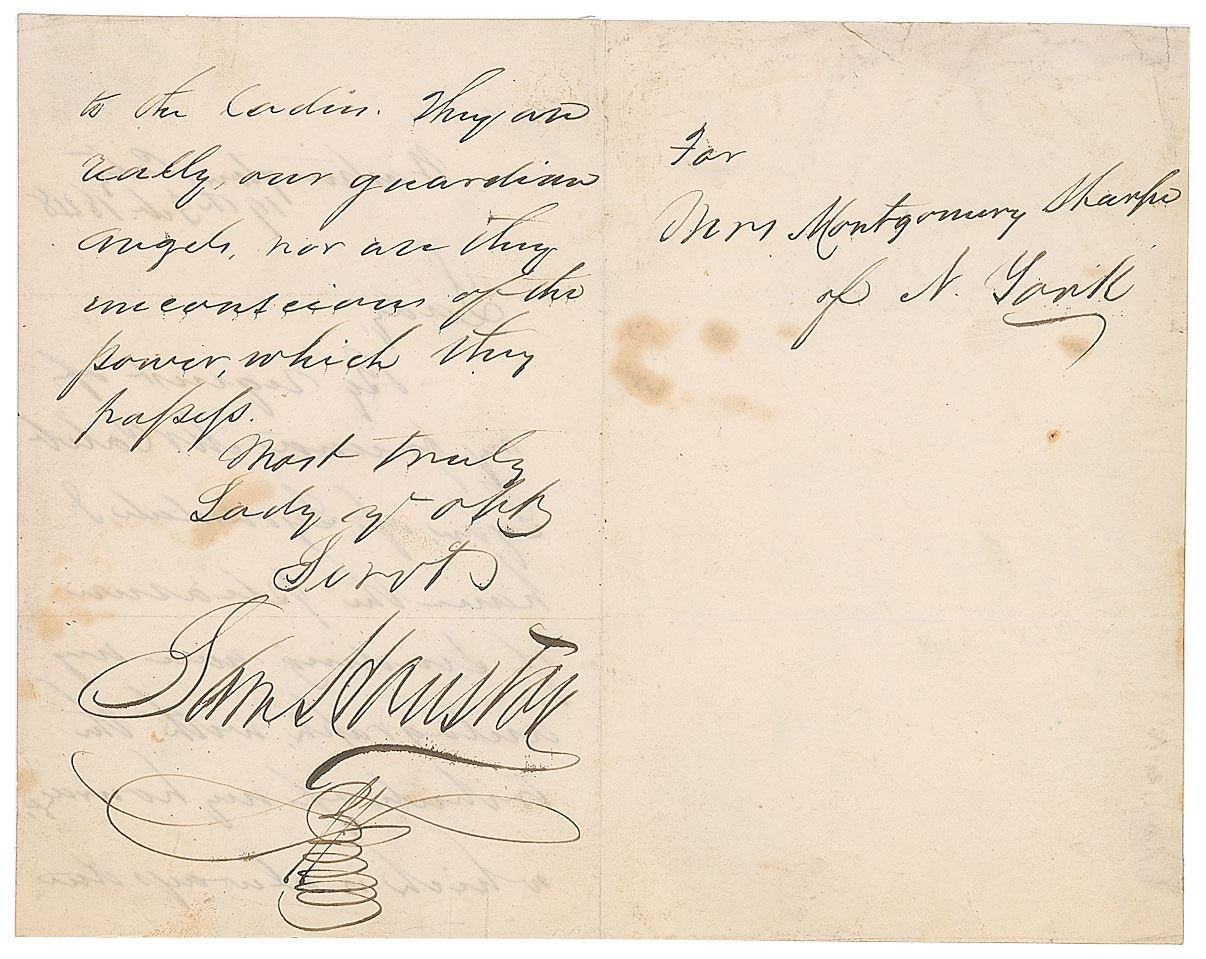 to the Ladies. They are
really, our guardian
angels, nor are they
unconscious of the
power, which they
possess.
Most truly
Lady yr obt
Servt
Sam Houston
For
Mrs Montgomery Sharpe
of N. York